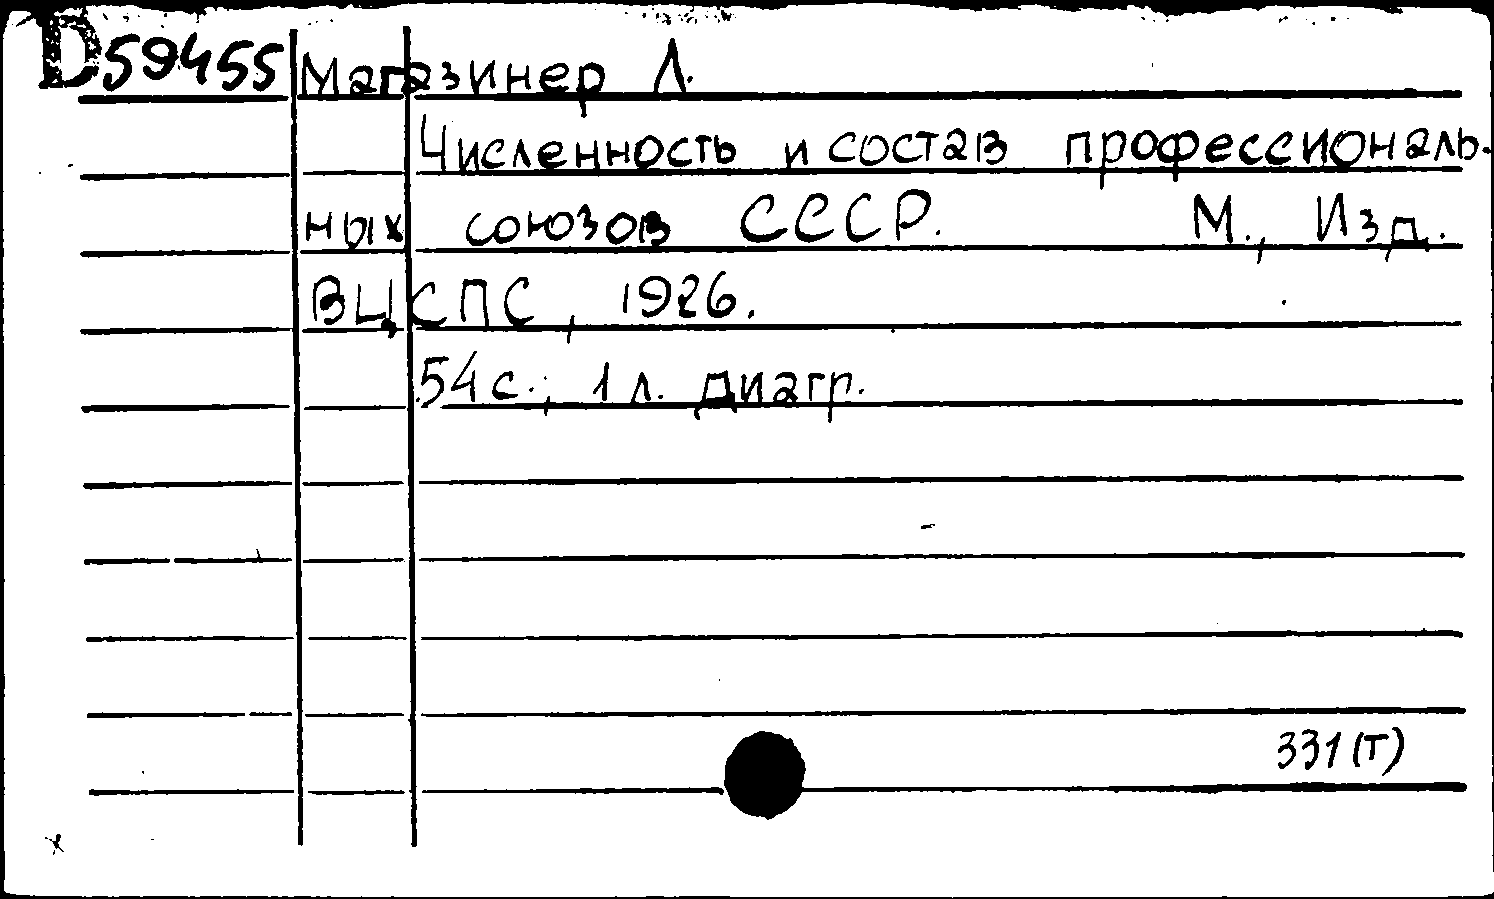 D59455 Магазинер Л.
Численность и состав профессиональ-
ных союзов СССР. М., Изд.
ВЦСПС, 1926.
54 с.; 1 л. диагр.
331(Т)